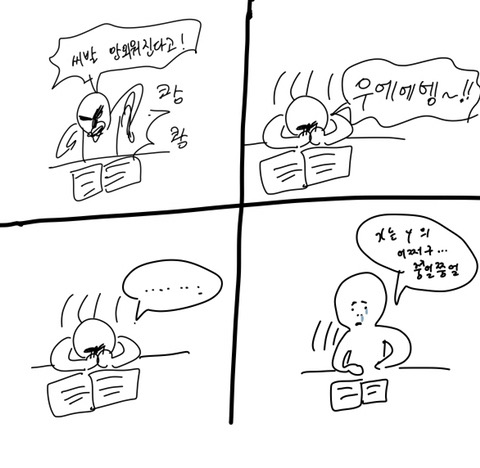 씨발 안외워진다고!
쾅
쾅
우에에엥~!!
......
X는 Y의
어쩌구...
중얼중얼